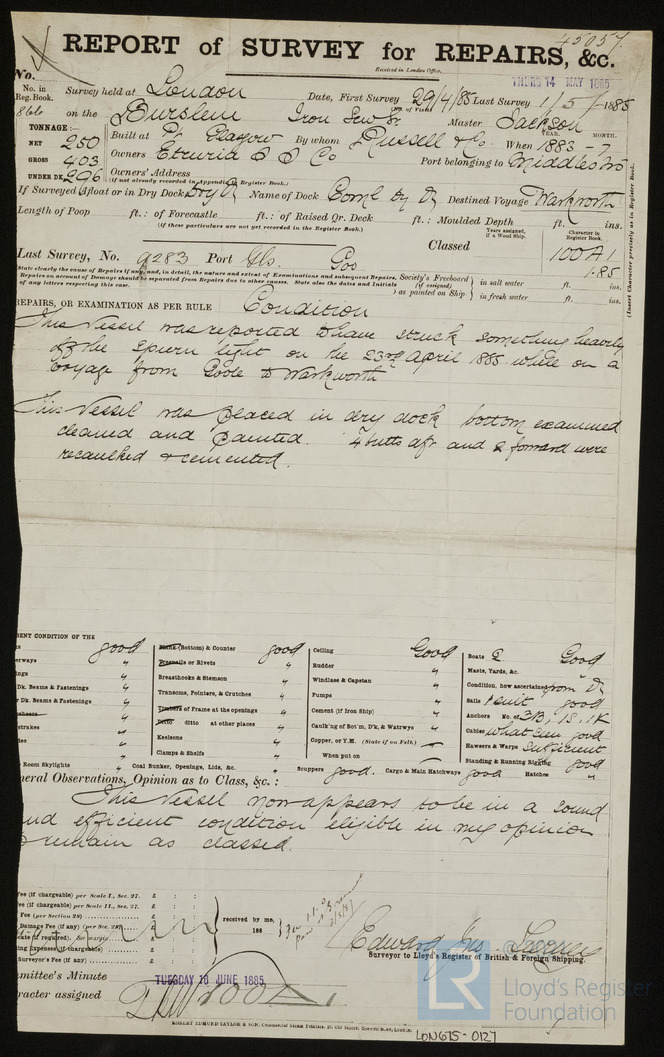 45057.
REPORT of SURVEY for REPAIRS, &c.
Received in London Office,
THURS 14 MAY 1885
No.
No. in Reg. Book.
Survey held at London Date, First Survey 29/4/85 Last Survey 1/5/1885
866 on the Burslem Iron Scw Sr Master Jackson
TONNAGE:—
YEAR. MONTH.
NET 250 Built at Pt Glasgow By whom Russell & Co When 1883 - 7
GROSS 403 Owners Etruria S S Co Port belonging to Middlesbro
UNDER DK 206 Owners' Address
(if not already recorded in Appendix to Register Book.)
If Surveyed Afloat or in Dry Dock Dry Dk Name of Dock Coml Dy Dk Destined Voyage Warkworth
Length of Poop ft.: of Forecastle ft.: of Raised Qr. Deck ft.: Moulded Depth ft. ins.
(if these particulars are not yet recorded in the Register Book.)
Years assigned, if a Wood Ship.
Character in Register Book.
(Insert Character precisely as in Register Book.
Last Survey, No. 9283 Port Hls. Classed 100A1
1.85
State clearly the cause of Repairs if any, and, in detail, the nature and extent of Examinations and subsequent Repairs.
Repairs on account of Damage should be separated from Repairs due to other causes. State also the dates and Initials
of any letters respecting this case.
Society's Freeboard (if assigned) as painted on Ship
in salt water ft. ins.
in fresh water ft. ins.
REPAIRS, OR EXAMINATION AS PER RULE Condition
This Vessel was reported to have struck something heavily
off the Spurn light on the 23rd April 1885 while on a
voyage from Goole to Warkworth
This Vessel was placed in dry dock bottom examined
cleaned and painted. 4 butts aft and 2 forward were
recaulked & cemented.
ENT CONDITION OF THE
good
Dk. Beams & Fastenings "
r Dk. Beams & Fastenings "
Room Skylights "
Plank (Bottom) & Counter good
Treenails or Rivets "
Breasthooks & Stemson "
Transoms, Pointers, & Crutches "
Timbers of Frame at the openings "
Ditto ditto at other places "
Keelsons "
Clamps & Shelfs "
Coal Bunker, Openings, Lids, &c. "
Ceiling Good
Rudder "
Windlass & Capstan "
Pumps "
Cement (if Iron Ship) "
Caulk'ng of Bot'm, D'k, & Watrwys "
Copper, or Y.M. (State if on Felt) —
When put on —
Scuppers good. Cargo & Main Hatchways good Hatches "
Boats 2 Good
Masts, Yards, &c. "
Condition, how ascertained from Dk
Sails 1 suit good
Anchors No. of 3B, 1S, 1K
Cables what seen good
Hawsers & Warps Sufficient
Standing & Running Rigging good
neral Observations, Opinion as to Class, &c.:
This Vessel now appears to be in a sound
and efficient condition eligible in my opinion
to remain as classed.
Fee (if chargeable) per Scale I., Sec. 27. £ : :
Fee (if chargeable) per Scale II., Sec. 27. £ : :
Fee (per Section 28) £ : :
Damage Fee (if any) (per Sec. 28) £
cate (if required). See margin.
ing Expenses (if chargeable) £
Surveyor's Fee (if any) £
received by me,
188
Edward Jno.
Surveyor to Lloyd's Register of British & Foreign Shipping.
mmittee's Minute TUESDAY 16 JUNE 1885
racter assigned 100 A1
MOBLEY EDMUND TAYLOR & SON, Commercial Steam Printers
Lloyd's Register
Foundation
LR
LON675-0127